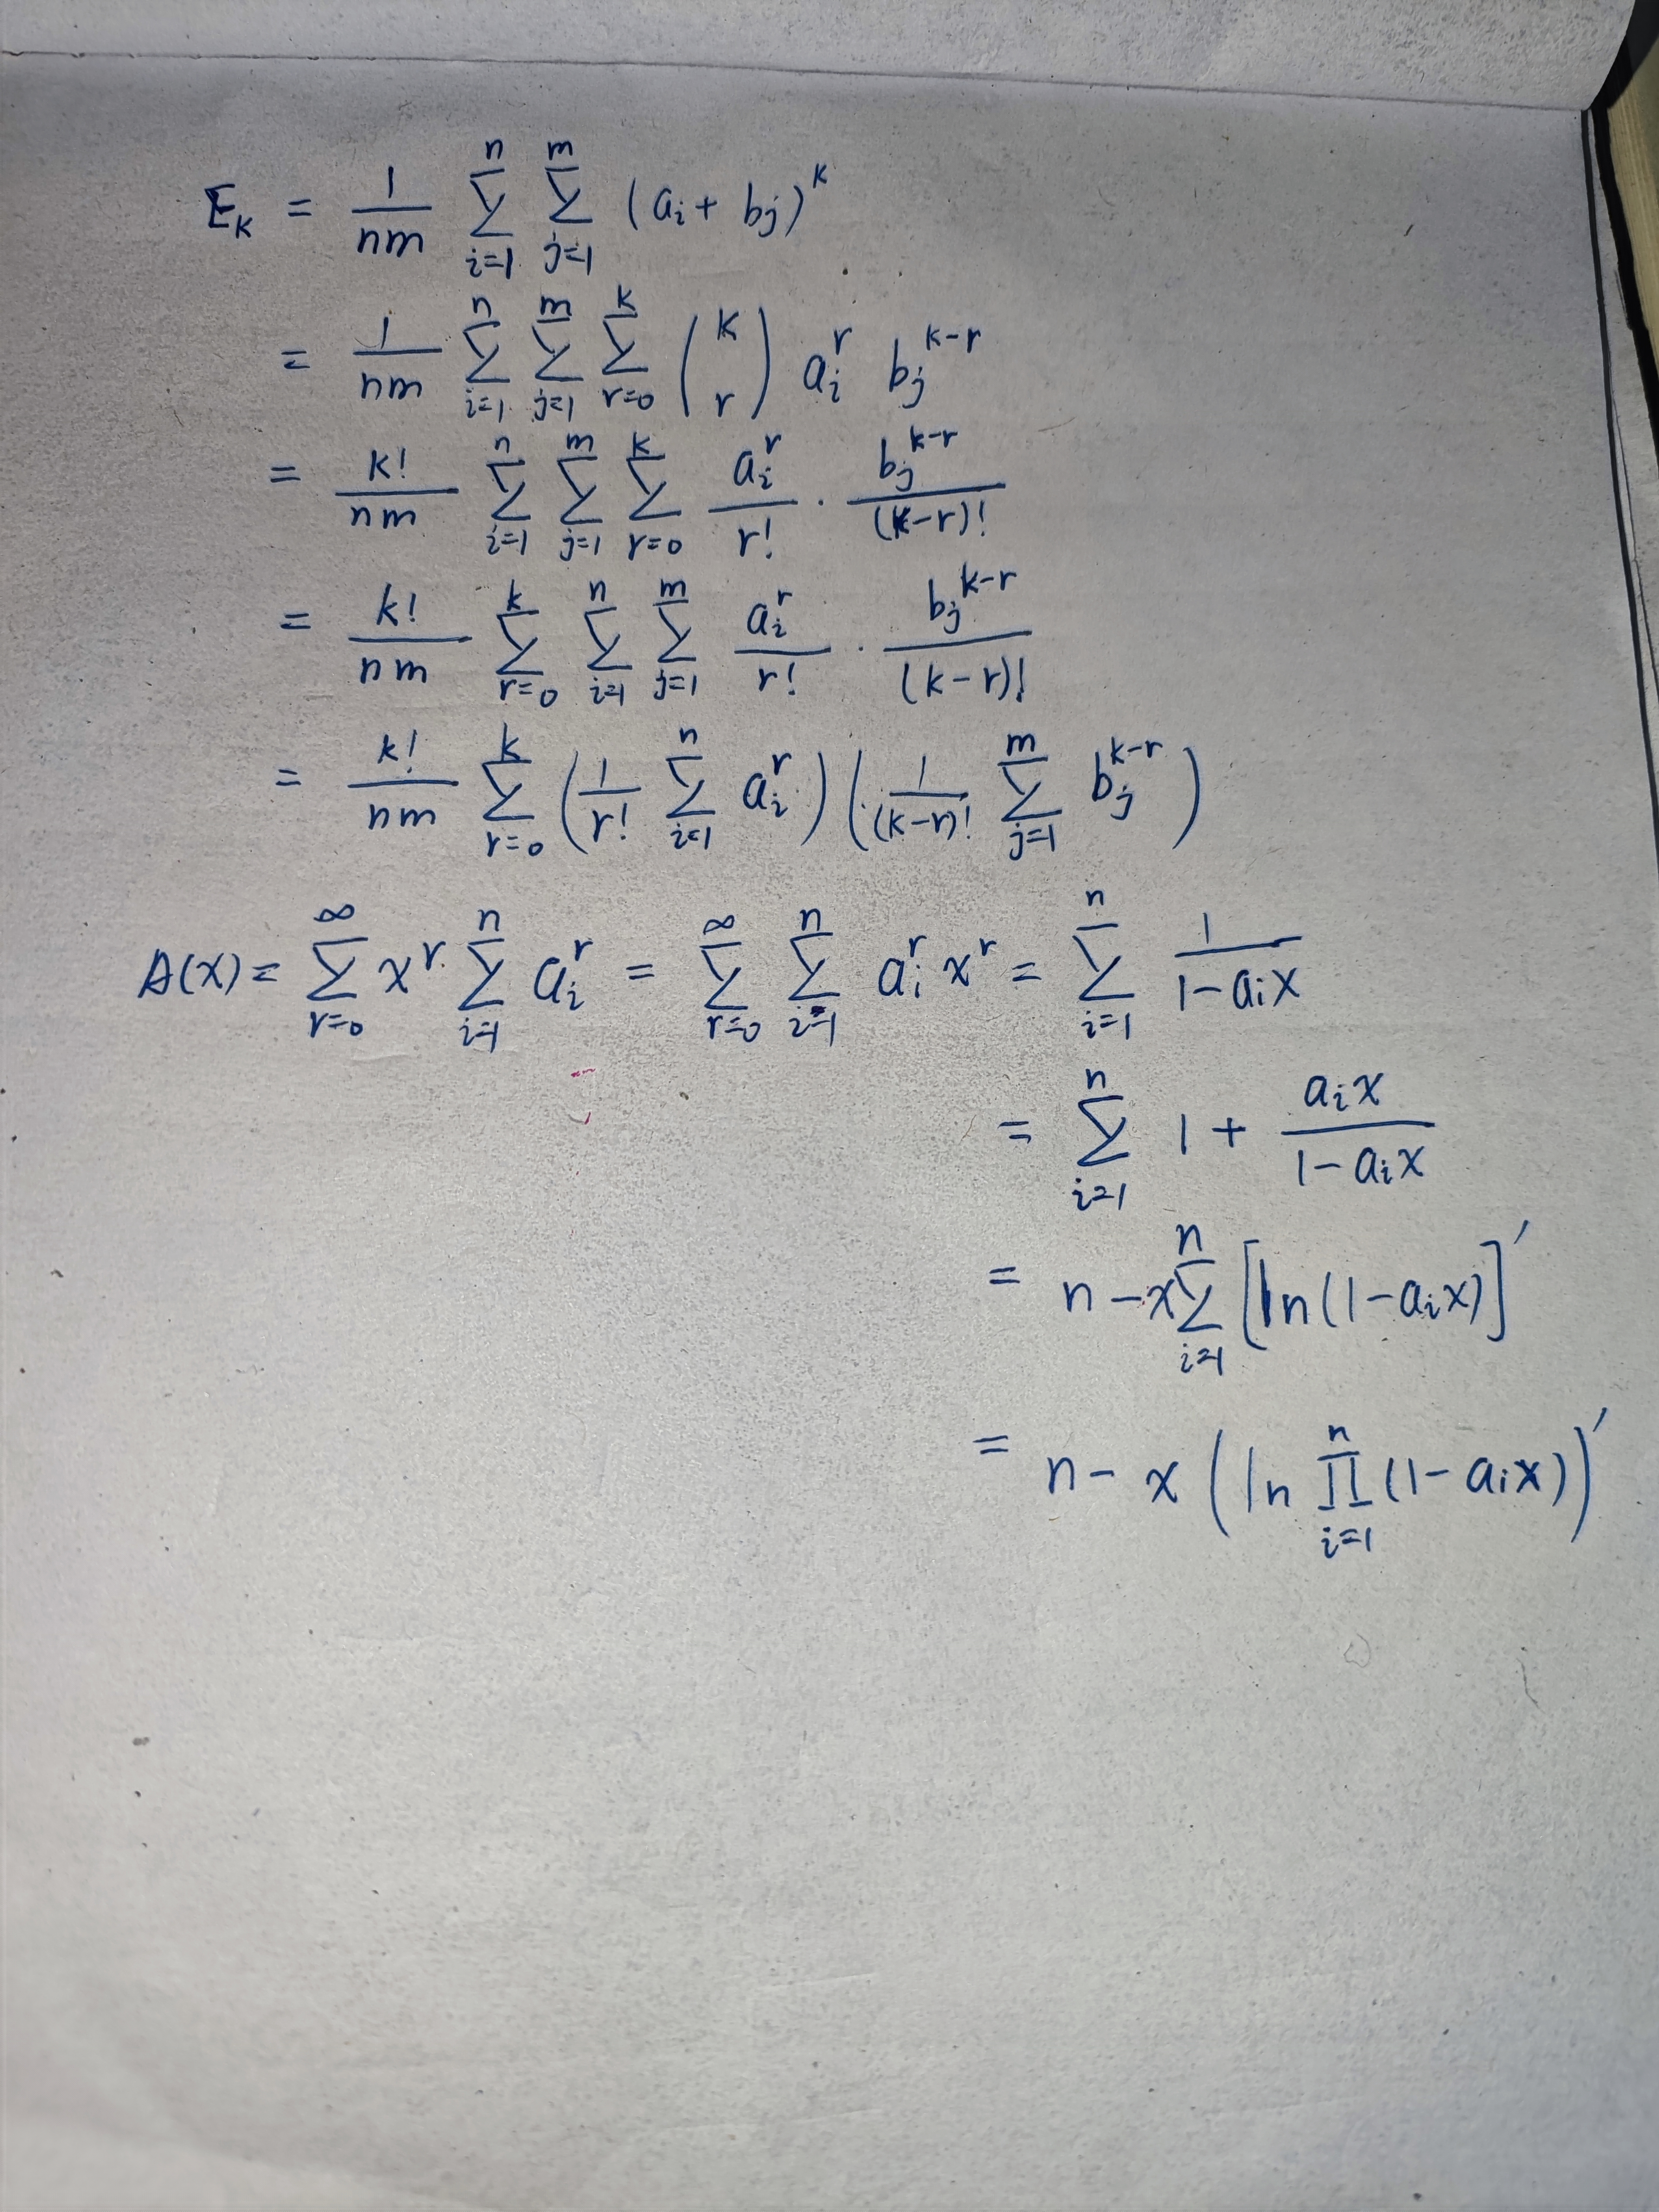 E_k = \frac{1}{nm} \sum_{i=1}^{n} \sum_{j=1}^{m} (a_i + b_j)^k
= \frac{1}{nm} \sum_{i=1}^{n} \sum_{j=1}^{m} \sum_{r=0}^{k} \binom{k}{r} a_i^r b_j^{k-r}
= \frac{k!}{nm} \sum_{i=1}^{n} \sum_{j=1}^{m} \sum_{r=0}^{k} \frac{a_i^r}{r!} \cdot \frac{b_j^{k-r}}{(k-r)!}
= \frac{k!}{nm} \sum_{r=0}^{k} \sum_{i=1}^{n} \sum_{j=1}^{m} \frac{a_i^r}{r!} \cdot \frac{b_j^{k-r}}{(k-r)!}
= \frac{k!}{nm} \sum_{r=0}^{k} \left( \frac{1}{r!} \sum_{i=1}^{n} a_i^r \right) \left( \frac{1}{(k-r)!} \sum_{j=1}^{m} b_j^{k-r} \right)
A(x) = \sum_{r=0}^{\infty} x^r \sum_{i=1}^{n} a_i^r = \sum_{r=0}^{\infty} \sum_{i=1}^{n} a_i^r x^r = \sum_{i=1}^{n} \frac{1}{1-a_i x}
= \sum_{i=1}^{n} 1 + \frac{a_i x}{1-a_i x}
= n - x \sum_{i=1}^{n} \left[ \ln(1-a_i x) \right]'
= n - x \left( \ln \prod_{i=1}^{n} (1-a_i x) \right)'